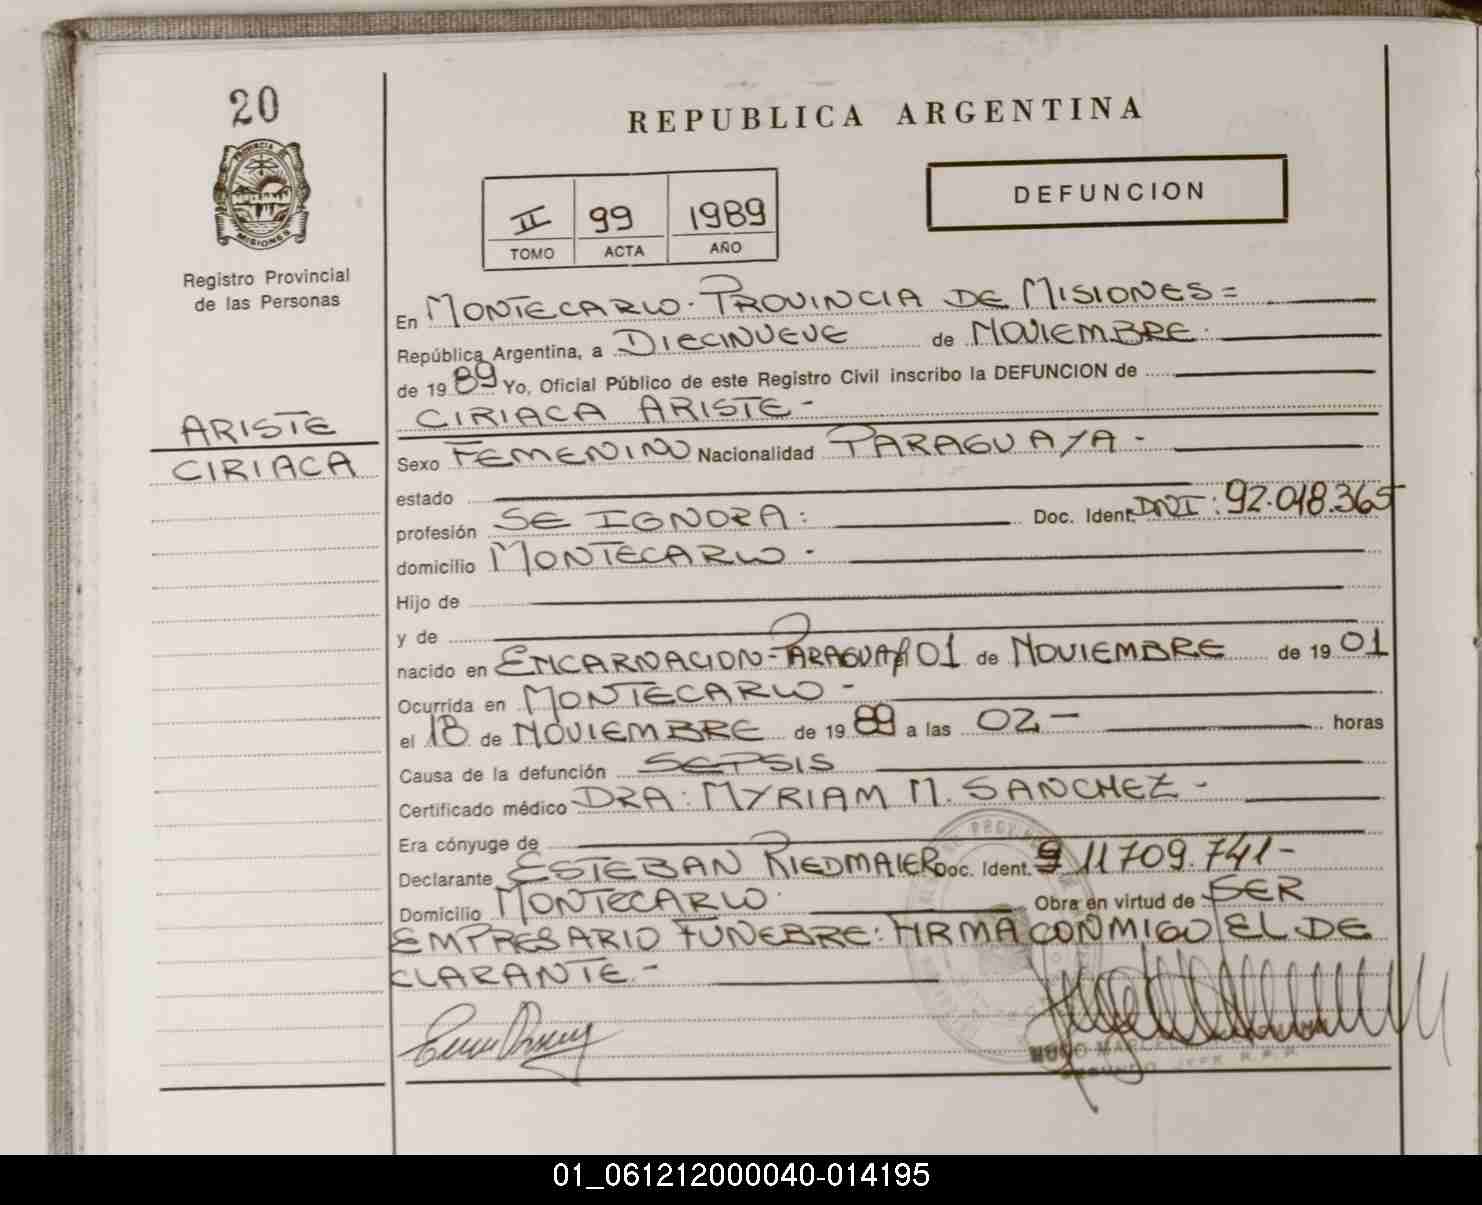 20
PROVINCIA DE
MISIONES
Registro Provincial
de las Personas
ARISTE
CIRIACA
REPUBLICA ARGENTINA
II 99 1989
TOMO ACTA AÑO
DEFUNCION
En MONTECARLO. PROVINCIA DE MISIONES=
República Argentina, a DIECINUEVE de NOVIEMBRE.
de 1989 Yo, Oficial Público de este Registro Civil inscribo la DEFUNCION de
CIRIACA ARISTE-
Sexo FEMENINO Nacionalidad PARAGUAYA-
estado
profesión SE IGNORA: Doc. Ident. DNI: 92.018.365
domicilio MONTECARLO.
Hijo de
y de
nacido en ENCARNACION-PARAGUAY 01 de NOVIEMBRE de 1901
Ocurrida en MONTECARLO-
el 18 de NOVIEMBRE de 1989 a las 02- horas
Causa de la defunción SEPSIS
Certificado médico DRA: MYRIAM M. SANCHEZ-
Era cónyuge de
Declarante ESTEBAN RIEDMAIER Doc. Ident. 11709.741-
Domicilio MONTECARLO. Obra en virtud de SER
EMPRESARIO FUNEBRE: FIRMA CONMIGO EL DE
CLARANTE.-
HUGO
01_061212000040-014195